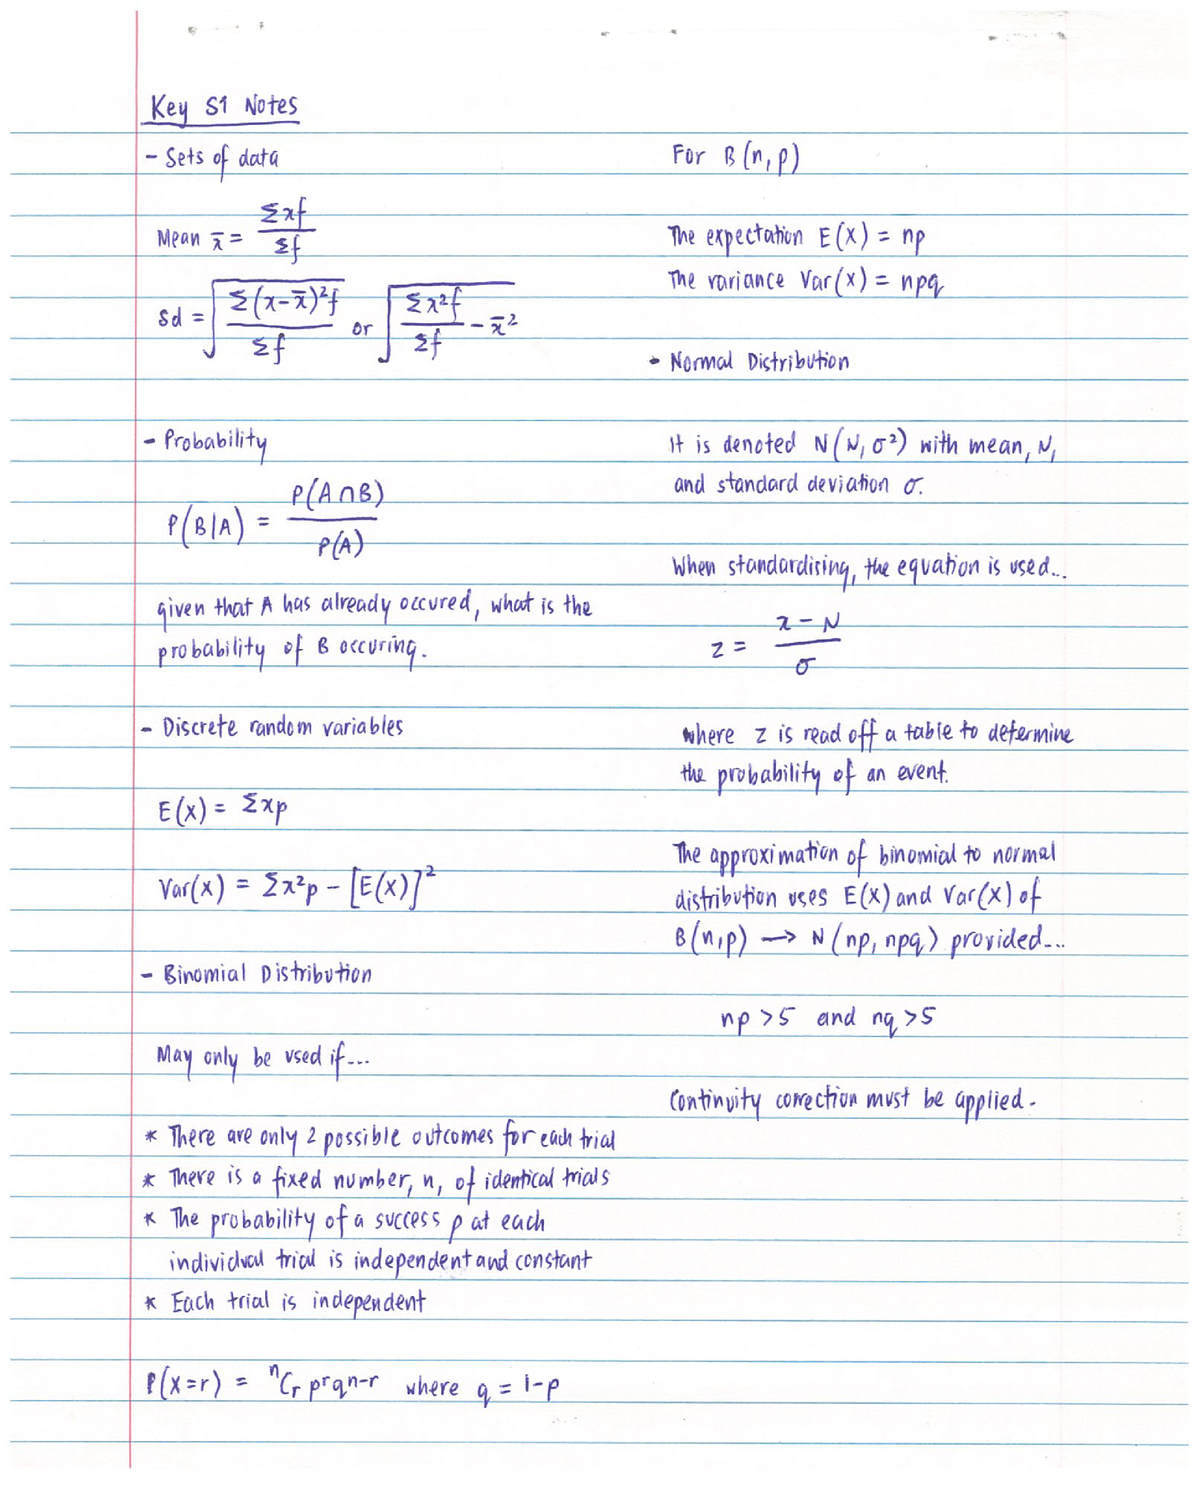 Key S1 Notes
- Sets of data
Mean x̄ = Σxf / Σf
Sd = √(Σ(x-x̄)²f / Σf) or √(Σx²f / Σf - x̄²)
- Probability
P(B|A) = P(A∩B) / P(A)
given that A has already occured, what is the
probability of B occuring.
- Discrete random variables
E(X) = Σxp
Var(X) = Σx²p - [E(X)]²
- Binomial Distribution
May only be used if...
* There are only 2 possible outcomes for each trial
* There is a fixed number, n, of identical trials
* The probability of a success p at each
individual trial is independent and constant
* Each trial is independent
P(X=r) = ⁿCr prqn-r where q = 1-p
For B(n,p)
The expectation E(X) = np
The variance Var(X) = npq
- Normal Distribution
It is denoted N(N, σ²) with mean, N,
and standard deviation σ.
When standardising, the equation is used...
z = x - N / σ
where z is read off a table to determine
the probability of an event.
The approximation of binomial to normal
distribution uses E(X) and Var(X) of
B(n,p) → N(np, npq) provided...
np >5 and nq >5
Continuity correction must be applied.